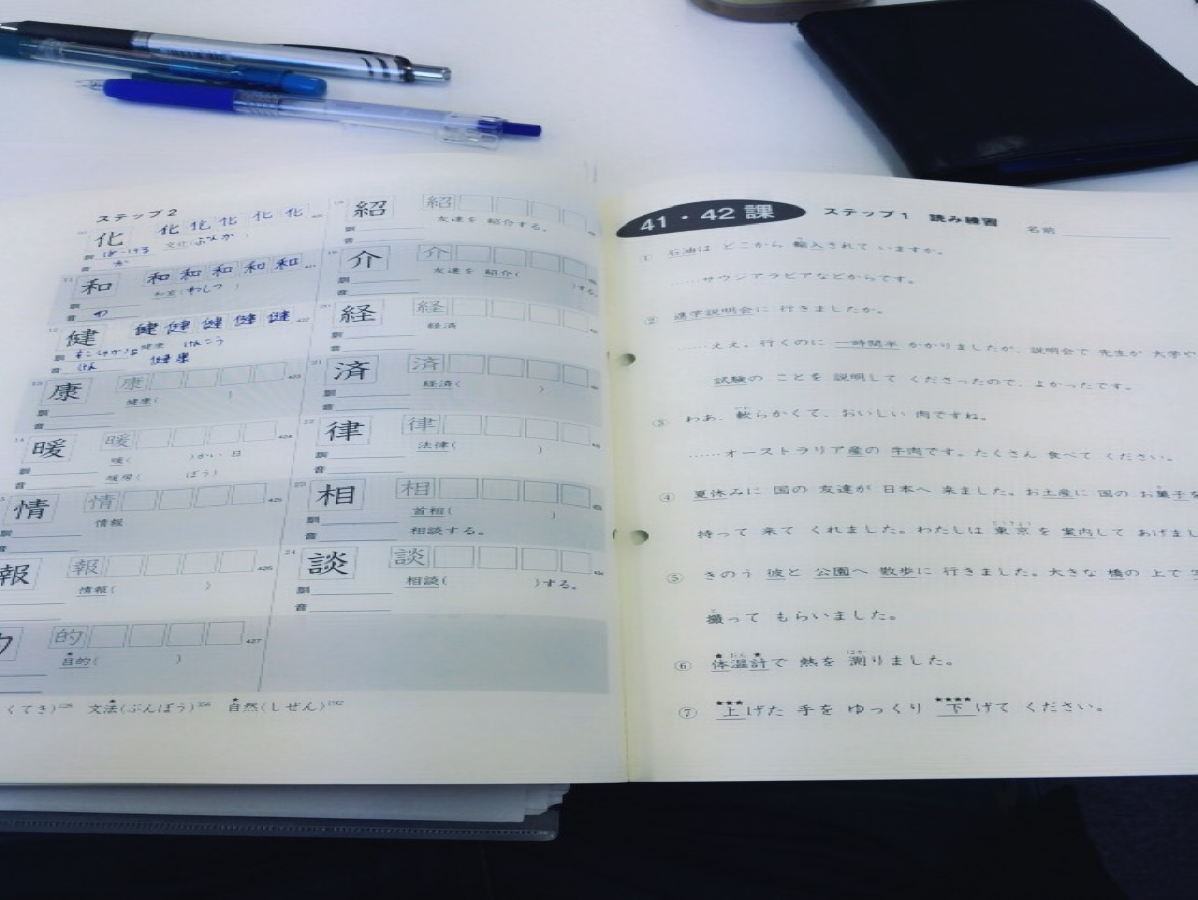 ステップ2
化 化 化 化 化 化
訓 ば-ける 文化(ぶんか)
音 か
和 和 和 和 和 和
和室(わしつ)
訓
音 わ
健 健 健 健 健 健
訓 すこやかな 健康 けんこう
音 けん 健康
康 康
健康( )
訓
音
暖 暖
暖( )かい 日
訓
暖房( ぼう)
音
情 情
情報
訓
音
報 報
情報( )
的
目的( )
紹 紹
友達を 紹介する。
訓
音
介 介
友達を 紹介( )する。
訓
音
経 経
経済
訓
音
済 済
経済( )
訓
音
律 律
法律( )
訓
音
相 相
首相( )
訓
相談する。
音
談 談
相談( )する。
訓
音
くてき) 文法(ぶんぽう) 自然(しぜん)
41・42 課 ステップ1 読み練習
名前
① 石油は どこから 輸入されて いますか。
……サウジアラビアなどからです。
② 進学説明会に 行きましたか。
……ええ。行くのに 一時間半 かかりましたが、説明会で 先生が 大学や
試験の ことを 説明して くださったので、よかったです。
③ わあ、軟らかくて、おいしい 肉ですね。
……オーストラリア産の 牛肉です。たくさん 食べて ください。
④ 夏休みに 国の 友達が 日本へ 来ました。お土産に 国の お菓子を
持って 来て くれました。わたしは 東京を 案内して あげまし
⑤ きのう 彼と 公園へ 散歩に 行きました。大きな 橋の 上で
撮って もらいました。
⑥ 体温計で 熱を 測りました。
⑦ 上げた 手を ゆっくり 下げて ください。